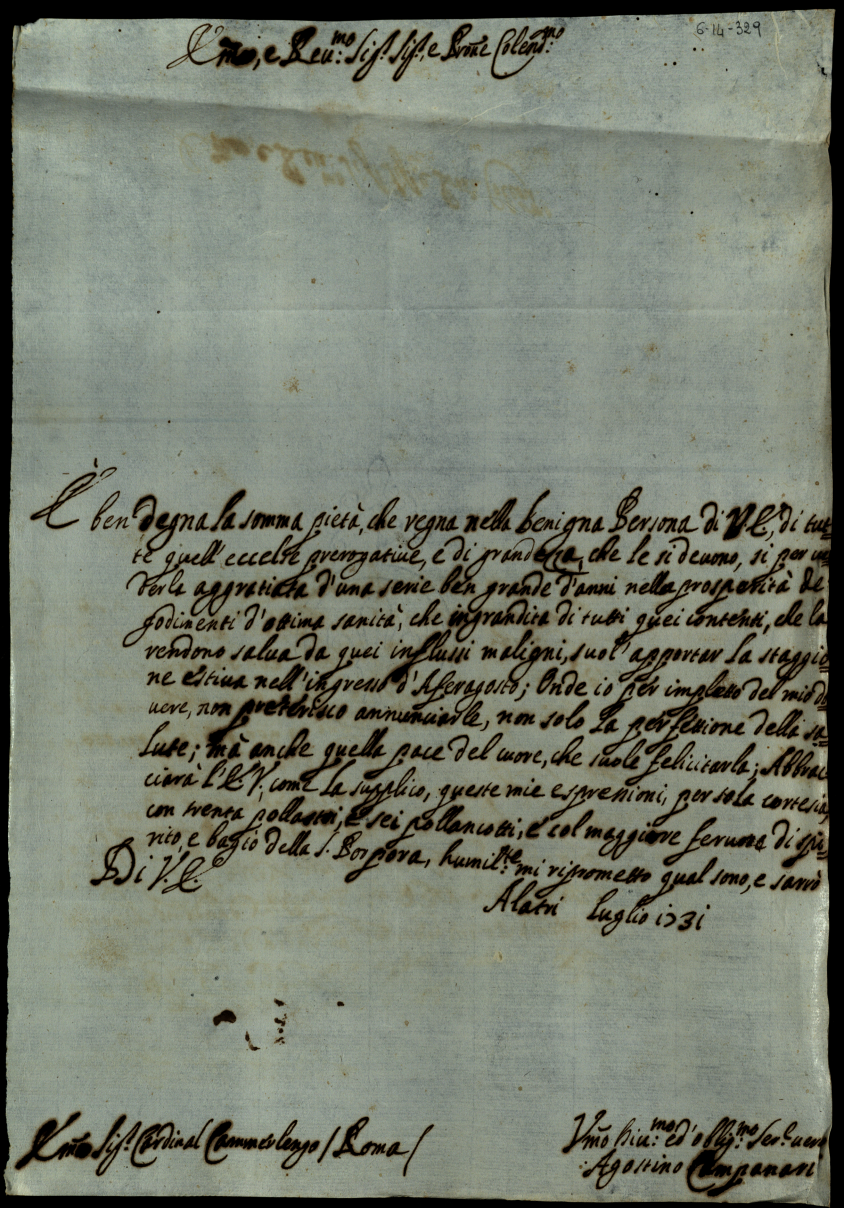 6-14-329
Em̃o, e Reu:mo Sigr. Sigr., e Prone Colend:mo
È ben degna la somma pietà, che regna nella benigna Persona di V.E., di tut=
te quell'eccelse prerogatiue, e di grandezza, che le si deuono, si per ue=
derla aggratiata d'una serie ben grande d'anni nella prosperità de
godimenti d'ottima sanità, che ingrandita di tutti quei contenti, che la
rendono salua da quei influssi maligni, suol' apportar la staggio=
ne estiua nell'ingresso d'Aferagosto; Onde io per impulso del mio do=
uere, non preterisco annunciarle, non solo la perfettione della sa=
lute; mà anche quella pace del cuore, che suole felicitarla; Abbrac=
ciarà l'E.V., come la supplico, queste mie espressioni, per sola cortesia,
con trenta pollastri, e sei pollancotti, e col maggiore feruore di spi=
rito, e bagio della S. Porpora, humil:te mi riprometto qual sono, e sarrò
Di V.E.
Alatri Luglio 1731
Em̃o Sigr. Cardinal Cammerlengo / Roma /
Vm̃o Diu:mo ed'oblig:mo Ser.e uero
Agostino Campanari